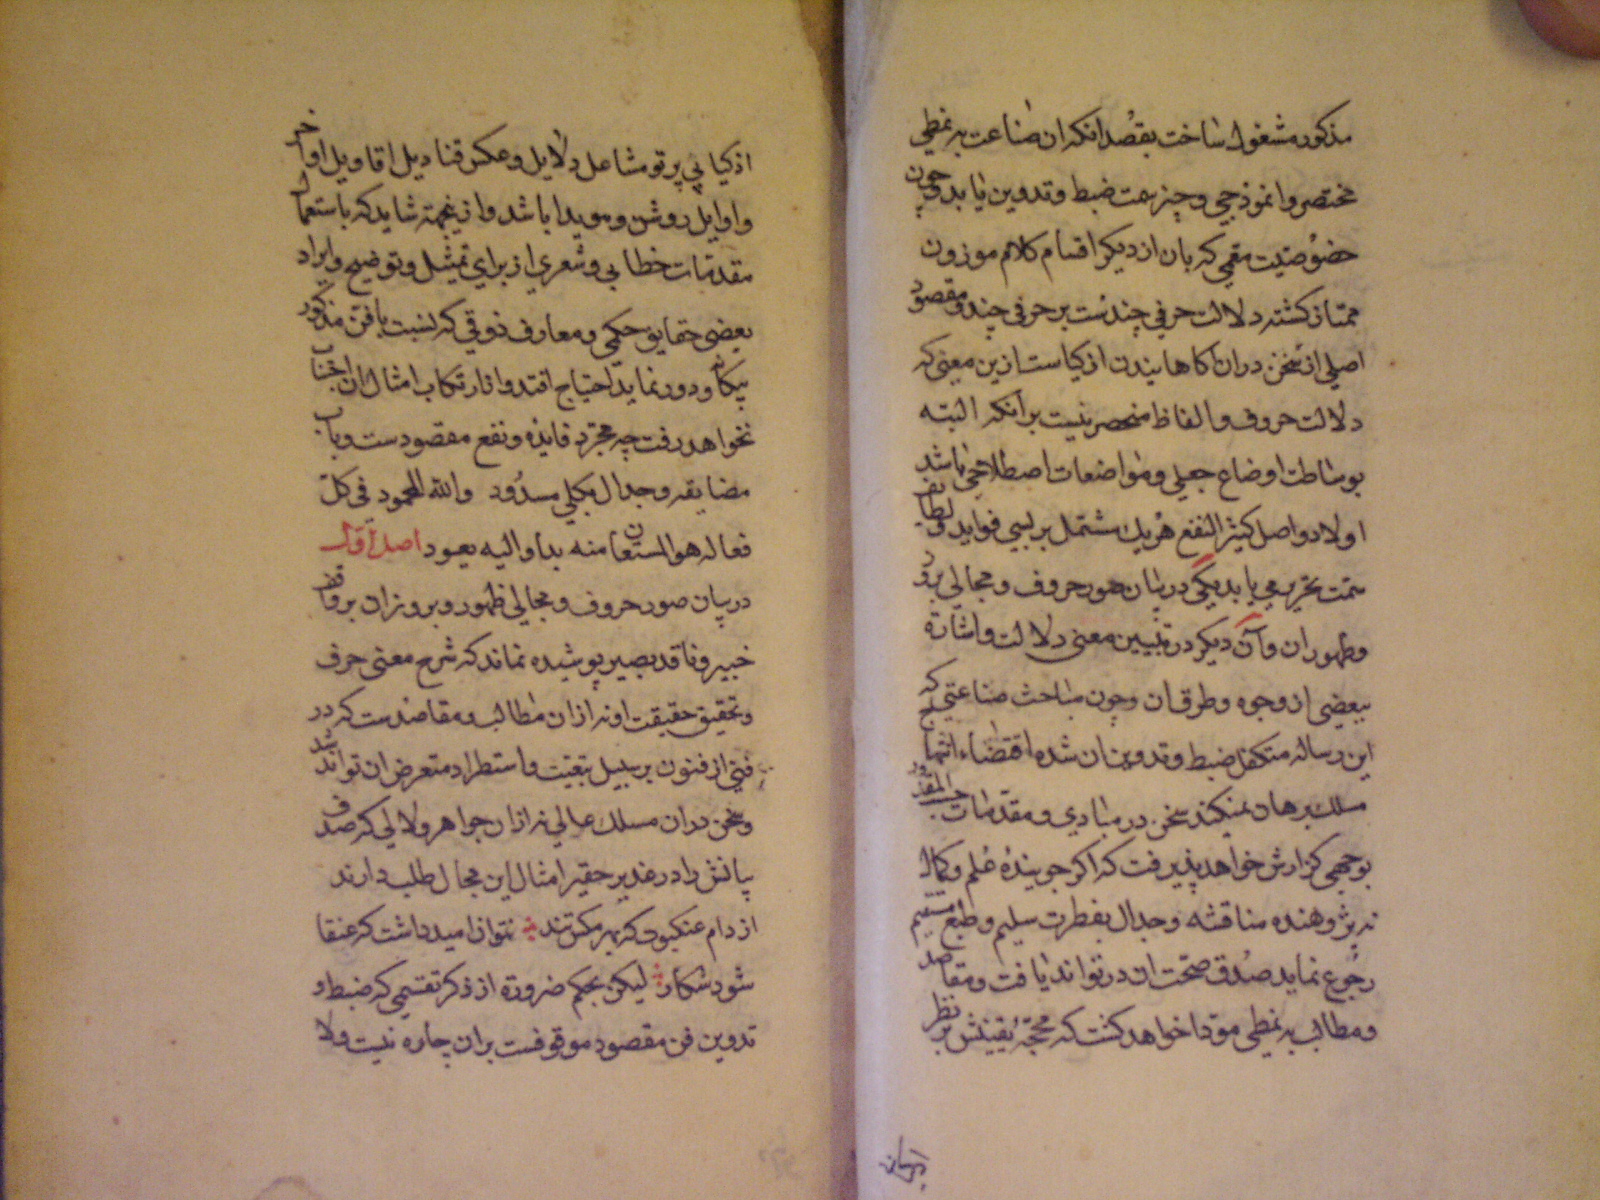 مذکور مشغول ساخت بقصد انکه ان صناعت به نمطی
مختصر و انموذجی وجیز سمت ضبط و تدوین یابد و چون
خصوصیت مقمی که بان از دیکر اقسام کلام موزون
ممتاز کشته دلالت حرفی چندست بر حرفی چند و مقصود
اصلی از سخن دران آکاهانیدن اذکیاست ازین معنی که
دلالت حروف و الفاظ منحصر نیست بر آنکه البته
بوساطت اوضاع جعلی و مواضعات اصطلاحی باشد
اولا دو اصل کثیر النفع هریک مشتمل بر بسی فواید و لطایف
سمت تحریر می یابد یکی در بیان صور حروف و مجالی بروز
و ظهور ان و آن دیکر در تبیین معنی دلالت و اشارة
ببعضی از وجوه و طرق ان و چون مباحث صناعتی که
این رساله متکفل ضبط و تدوین ان شده اقتضاء انتهاج
مسلک برهان نمیکند سخن در مبادی و مقدمات حسب المقدور
بوجهی کزارش خواهد پذیرفت که اکر جوینده علم و کمال
نه پژوهنده مناقشه و جدال بفطرت سلیم و طبع مستقیم
رجوع نماید صدق و صحت ان در تواند یافت و مقاصد
و مطالب به نمطی مودا خواهد کشت که محجة یقینش بر نظر
اذکیا بی پرتو مشاعل دلایل و عکس قنادیل اقاویل اواخر
و اوایل روشن و هویدا باشد و ازینجهة شاید که باستعمال
مقدمات خطابی و شعری از برای تمثیل و توضیح و ایراد
بعضی حقایق حکمی و معارف ذوقی که نسبت با فن مذکور
بیکانه و دور نماید احتیاج افتد و از ارتکاب امثال ان اجتناب
نخواهد رفت چه مجرد فایده و نفع مقصودست و باب
مضایقه و جدال بکلی مسدود والله المحمود فی کل
فعاله هو المستعان منه بدا و الیه یعود اصل اول
در بیان صور حروف و مجالی ظهور و بروز ان بر واقف
خبیر و ناقد بصیر پوشیده نماند که شرح معنی حرف
و تحقیق حقیقت او نه ازان مطالب و مقاصدست که در
فنی از فنون بر سبیل تبعیت و استطراد متعرض ان تواند شد
و سخن دران مسلک عالی نه ازان جواهر و لالی که صدف
پانش را در غدیر حقیر امثال این مجال طلب دارند
از دام عنکبوت که بهر مکس تند نتوان امید داشت که عنقا
شود شکار لیکن بحکم ضرورة از ذکر تقسیمی که ضبط و
تدوین فن مقصود موقوفست بران چاره نیست ولا